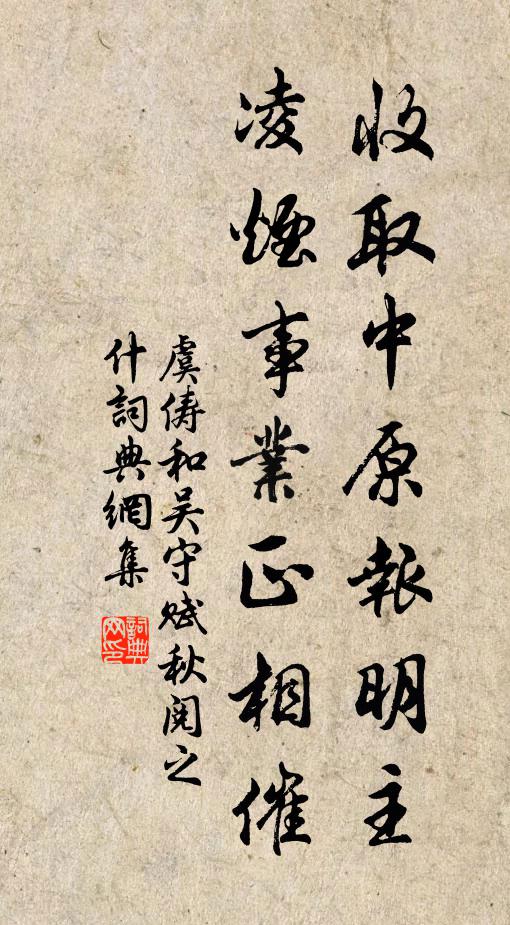 收取中原報明主
凌煙事業正相催
虞儔和吳守賦秋閱之
什詞典網集
詞典
網印